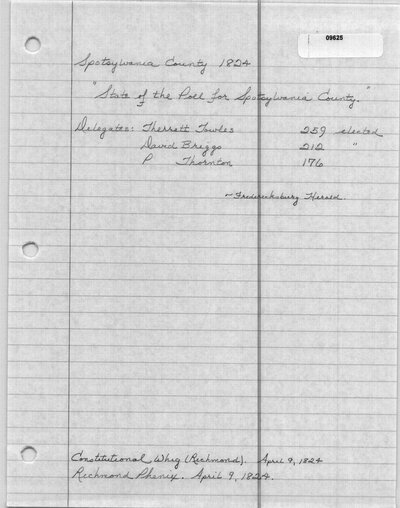 09625
Spotsylvania County 1824
"State of the Poll for Spotsylvania County."
Delegates: Therrett Towles 259 elected
David Briggs 212 "
P Thornton 176
- Fredericksburg Herald.
Constitutional Whig (Richmond). April 9, 1824
Richmond Phenix. April 9, 1824.